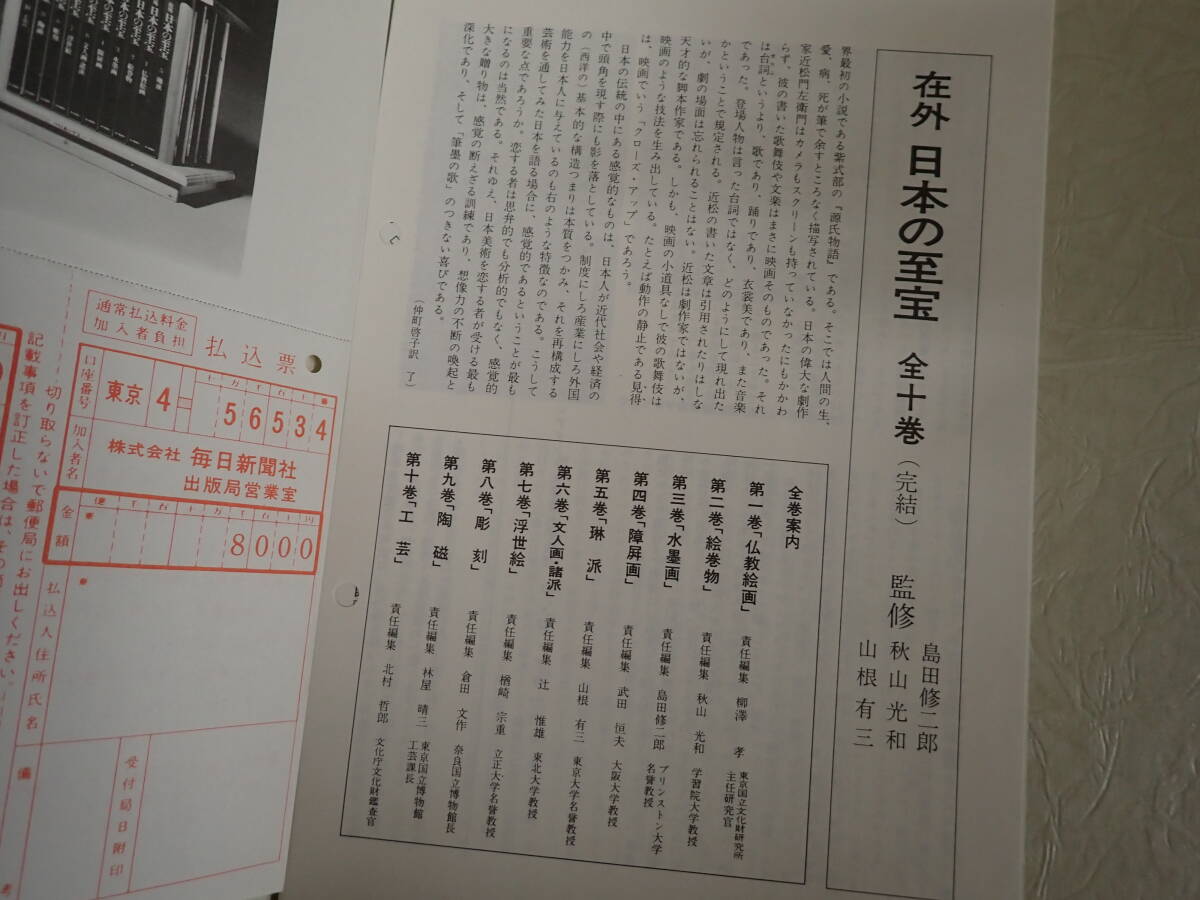 在外 日本の至宝 全十巻（完結） 監修
島田修二郎
秋山光和
山根有三
界最初の小説である紫式部の『源氏物語』である。そこでは人間の生、
愛、病、死が筆で余すところなく描写されている。日本の偉大な劇作
家近松門左衛門はカメラもスクリーンも持っていなかったにもかかわ
らず、彼の書いた歌舞伎や文楽はまさに映画そのものであった。それ
は台詞というより、歌であり、踊りであり、衣裳美であり、また音楽
であった。登場人物は言った台詞ではなく、どのようにして現れ出た
かということで規定される。近松の書いた文章は引用されたりはしな
いが、劇の場面は忘れられることはない。近松は劇作家ではないが、
天才的な脚本作家である。しかも、映画の小道具なしで彼の歌舞伎は
映画のような技法を生み出している。たとえば動作の静止である見得
は、映画でいう「クローズ・アップ」であろう。
日本の伝統の中にある感覚的なものは、日本人が近代社会や経済の
中で頭角を現す際にも影を落としている。制度にしろ産業にしろ外国
の（西洋の）基本的な構造つまりは本質をつかみ、それを再構成する
能力を日本人に与えているのも右のような特徴なのである。こうして
芸術を通してみた日本を語る場合に、感覚的であるということが最も
重要な点であろうか。恋する者は思弁的でも分析的でもなく、感覚的
になるのは当然である。それゆえ、日本美術を恋する者が受ける最も
大きな贈り物は、感覚の断えざる訓練であり、想像力の不断の喚起と
深化であり、そして「筆墨の歌」のつきない喜びである。
（仲町啓子訳 了）
全巻案内
第一巻「仏教絵画」 責任編集 柳澤 孝 東京国立文化財研究所主任研究官
第二巻「絵巻物」 責任編集 秋山 光和 学習院大学教授
第三巻「水墨画」 責任編集 島田修二郎 プリンストン大学名誉教授
第四巻「障屏画」 責任編集 武田 恒夫 大阪大学教授
第五巻「琳 派」 責任編集 山根 有三 東京大学名誉教授
第六巻「文人画・諸派」 責任編集 辻 惟雄 東北大学教授
第七巻「浮世絵」 責任編集 楢崎 宗重 立正大学名誉教授
第八巻「彫 刻」 責任編集 倉田 文作 奈良国立博物館長
第九巻「陶 磁」 責任編集 林屋 晴三 東京国立博物館工芸課長
第十巻「工 芸」 責任編集 北村 哲郎 文化庁文化財鑑査官
通常払込料金
加入者負担
払込票
口座番号
東京 4 56534
加入者名
株式会社 毎日新聞社
出版局営業室
金額
8000
払込人住所氏名
受付局日附印
備考
切り取らないで郵便局にお出しください。
記載事項を訂正した場合は、その
日本の至宝